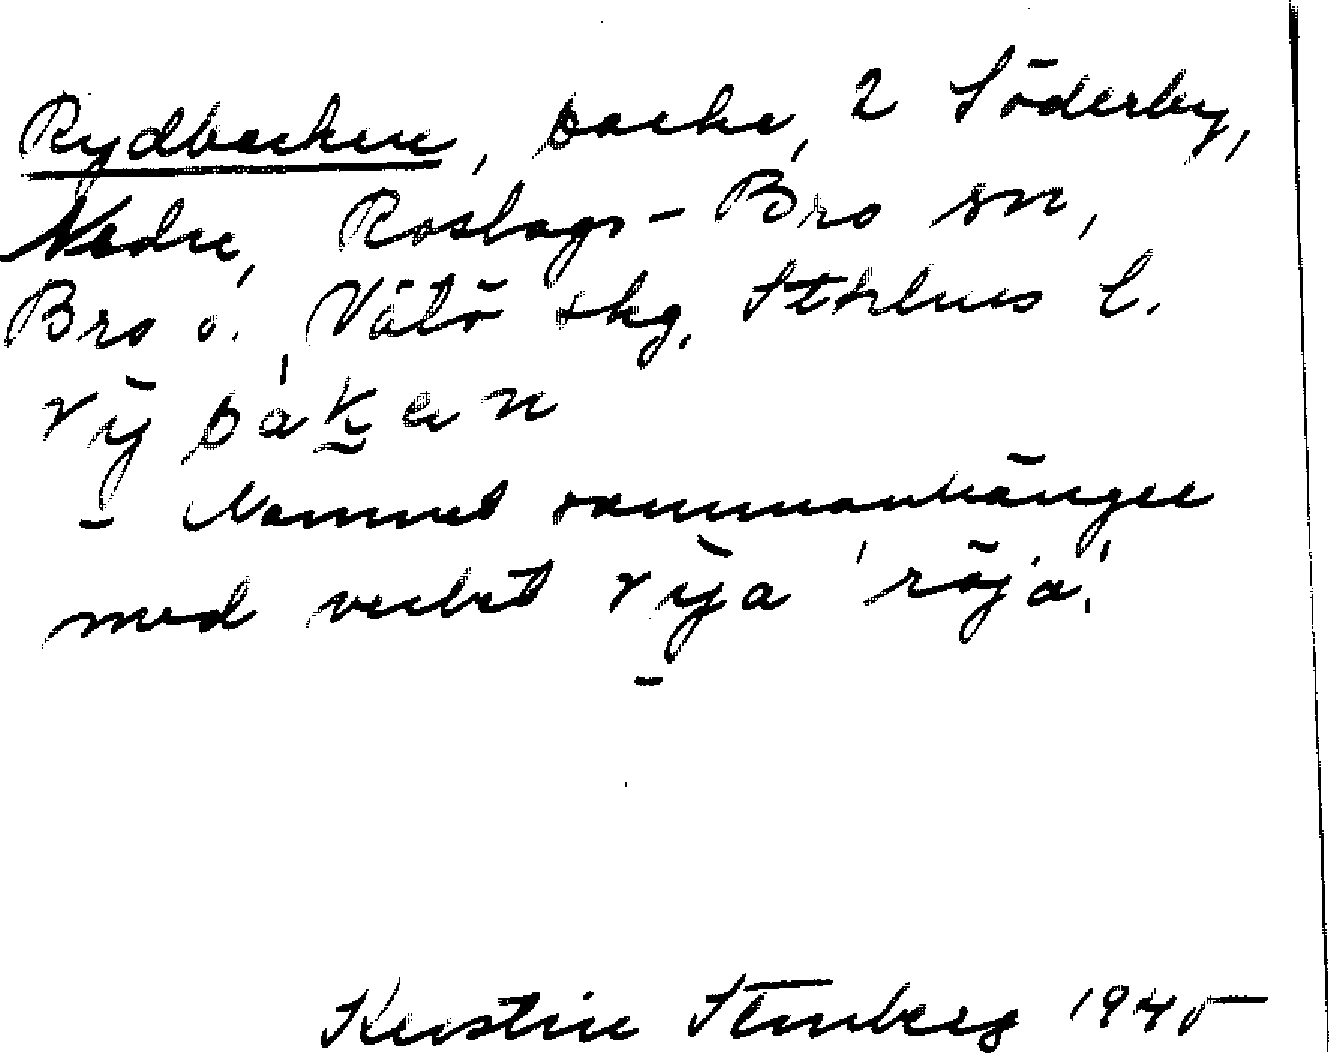 Rydbacken, backe, 2 Söderby,
Nedre, Roslags-Bro sn,
Bro o. Vätö skg, Sthlms l.
rȳbàk̬en
– Namnet sammanhänger
med verbet rȳa 'röja'.
Kerstin Stenberg 1945